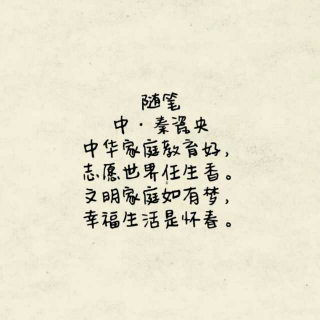 随笔
中·秦瓷央
中华家庭教育好，
志愿世界任生香。
文明家庭如有梦，
幸福生活是怀春。